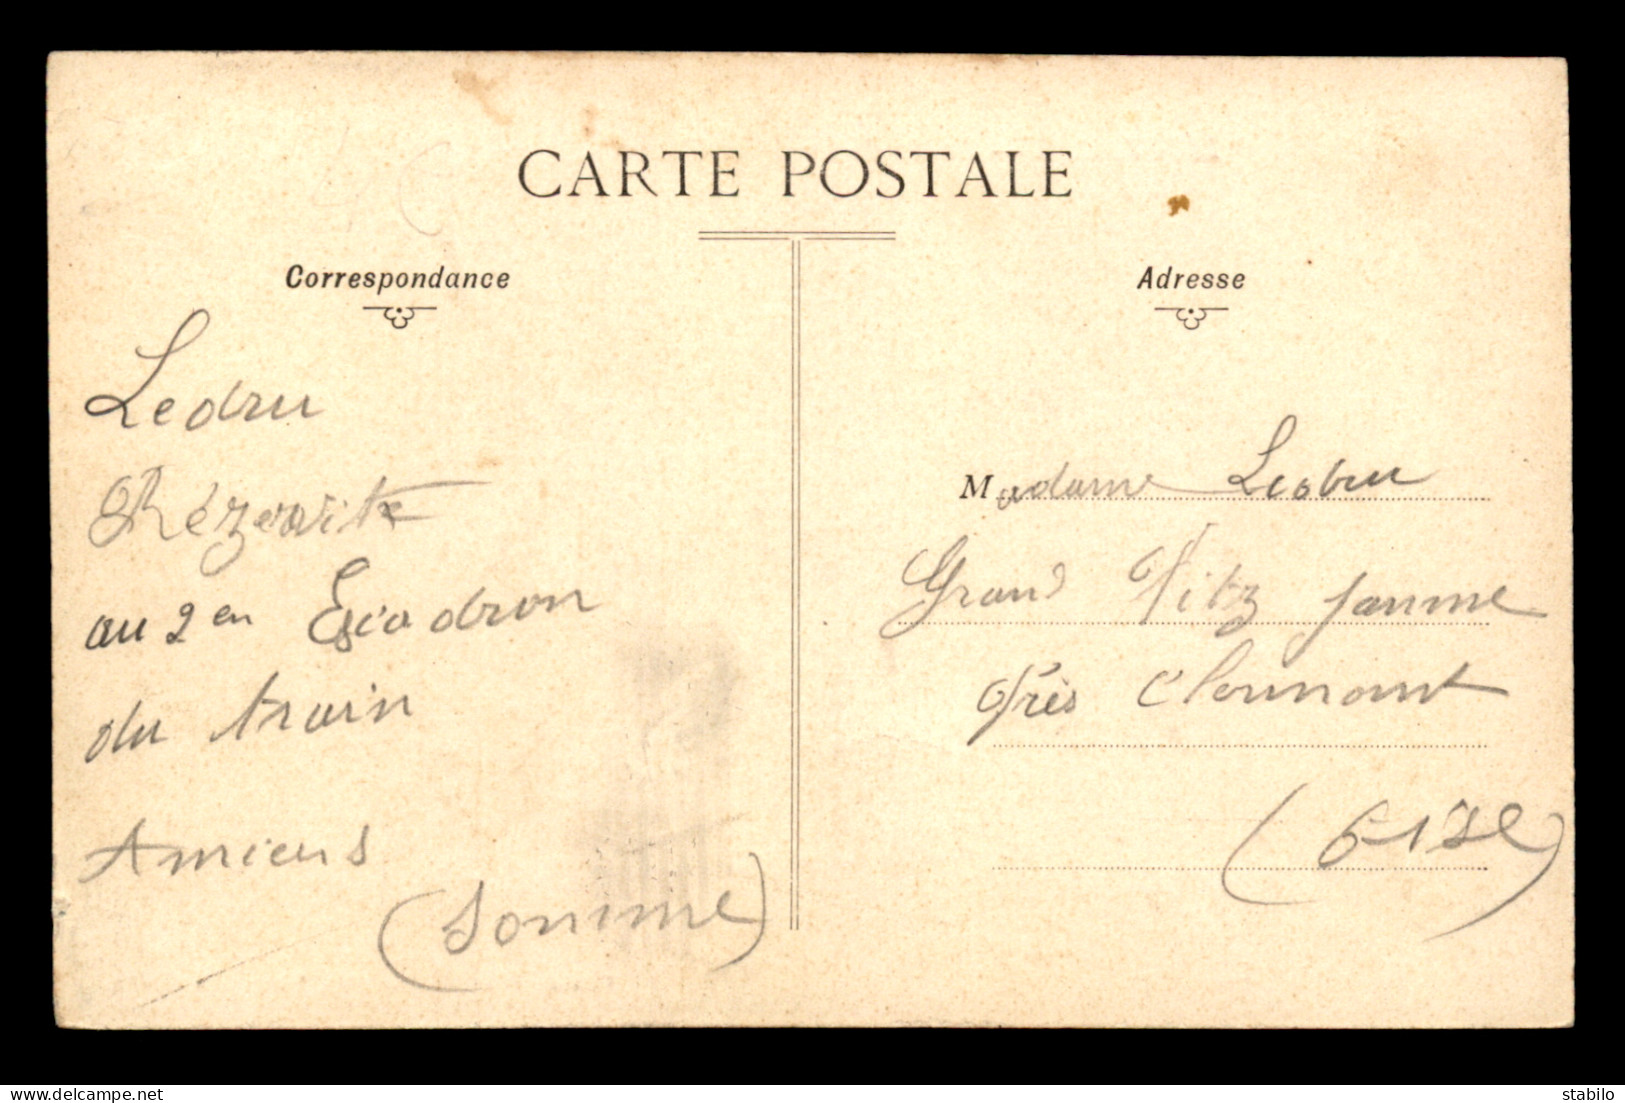 CARTE POSTALE
Correspondance
Ledru
Rézervite
au 2en Escadron
du train
Amiens
(Somme)
Adresse
Madame Ledru
Grand Fitz Jamme
Près Clermont
(Oise)
stabilo